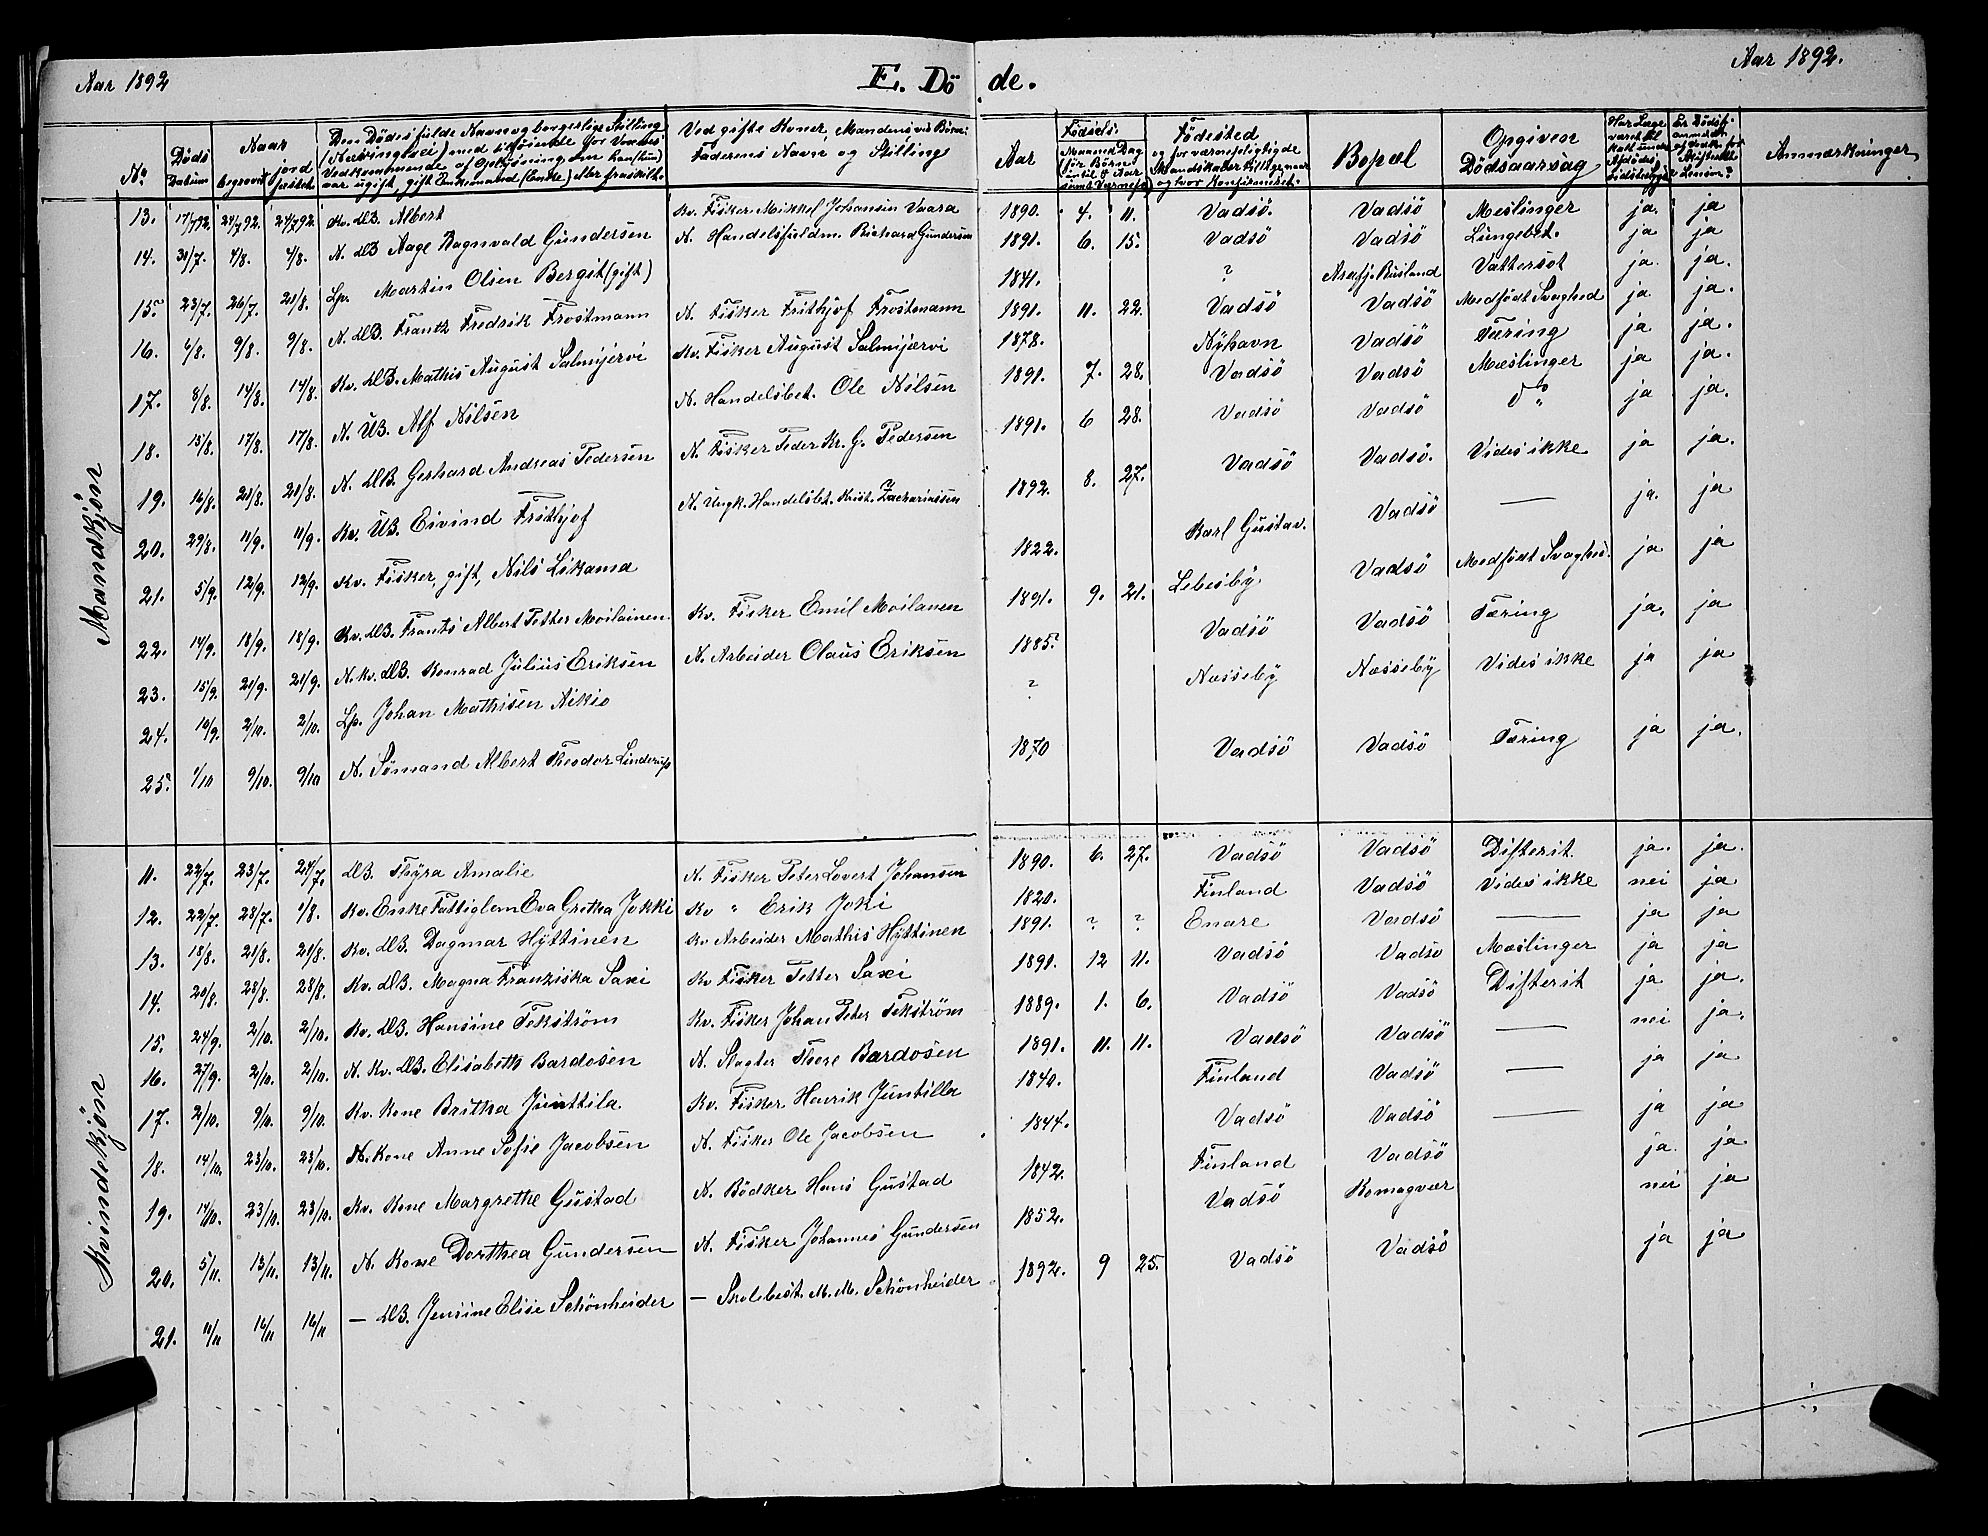 Aar 1892 E. Döde. Aar 1892.
No. Döds Datum Naar begravet jord fæstet Den Dödes fulde Navn og borgerlige Stilling Ved gifte Koner, Mandens, ved Börn: Faderens Navn og Stilling Födsels: Aar Födested Bopæl Opgiven Dödsaarsag Anmærkninger
Mandkjön
13. 17/7 92. 24/7 92. 24/7 92. Kv. DB. Albert Kv. Fisker Mikkel Johansen Vaara 1890. 4. 11. Vadsö. Vadsö Meslinger ja. ja
14. 31/7. 4/8. 4/8. N. DB Aage Ragnvald Gundersen N. Handelsfuldm. Richard Gundersen 1891. 6. 15. Vadsö Vadsö Lungebet. ja ja
15. 23/7. 26/7. 21/8. Lp. Martin Olsen Bergit (gift) 1841. ? Arafj. Rusland Vattersot ja. ja.
16. 6/8. 9/8. 9/8. N. DB. Frantz Fredrik Frostmann N. Fisker Frithjof Frostmann 1891. 11. 22. Vadsö Vadsö Medfödt Svaghed ja ja.
17. 8/8. 14/8. 14/8. Kv. DB. Mathis August Salmijervi Kv. Fisker August Salmijærvi 1878. Nyhavn Vadsö Tæring ja ja.
18. 15/8. 17/8. 17/8. N. UB. Alf Nilsen N. Handelsbet. Ole Nilsen 1891. 7. 28. Vadsö Vadsö Mæslinger ja ja.
19. 16/8. 21/8. 21/8. N. DB. Gerhard Andreas Pedersen N. Fisker Peder Kr. G. Pedersen 1891. 6 28. Vadsö Vadsö do " ja ja.
20. 29/8. 11/9. 11/9. Kv. UB. Eivind Frithjof N. Ungk. Handelsbet. Krist. Zachariassen 1892. 8. 27. Vadsö Vadsö. Vides ikke ja ja.
21. 5/9. 12/9. 12/9. Kv. Fisker, gift, Nils Likama 1822. Karl Gustav. Vadsö — ja. ja
22. 14/9. 18/9. 18/9. Kv. DB. Frants Albert Petter Moilainen Kv. Fisker Emil Moilanen 1891. 9. 21. Lebesby Vadsö Medfödt Svaghed. ja ja
23. 15/9. 21/9. 21/9. N. Kv. DB. Konrad Julius Eriksen N. Arbeider Olaus Eriksen 1885. Vadsö Vadsö Tæring ja. ja
24. 10/9. 2/10. 2/10. Lp. Johan Mathisen Aikio ? Næsseby Næsseby Vides ikke ja ja
25. 1/10 9/10. 9/10 N. Sömand Albert Theodor Linderup 1870 Vadsö Vadsö Tæring ja ja.
Kvindekjön
11. 22/7. 23/7. 24/7. DB. Thyra Amalie N. Fisker Peter Lovert Johansen 1890. 6. 27. Vadsö Vadsö Difterit. ja. ja.
12. 22/7. 28/7. 1/8. Kv. Enke Fattiglem Eva Gretha Jokki Kv " Erik Joki 1820. Finland Vadsö Vides ikke nei ja
13. 18/8. 21/8. 21/8. Kv. DB. Dagmar Hyttinen Kv Arbeider Mathis Hyttinen 1891. ? ? Enare Vadsö — ja ja
14. 20/8. 28/8. 28/8. Kv. DB. Magna Franziska Saxi Kv Fisker Petter Saxi 1891. 12 11. Vadsö Vadsö Mæslinger ja ja
15. 24/9. 2/10. 2/10. Kv. DB. Hansine Tekström Kv. Fisker Johan Peter Tekström 1889. 1. 6. Vadsö Vadsö Difterit ja ja.
16. 27/9. 2/10. 2/10. N. Kv. DB. Elisabeth Bardosen N. Slagter Thore Bardosen 1891. 11. 11. Vadsö Vadsö — nei ja.
17. 2/10. 9/10. 9/10. Kv. Kone Britha Junttila Kv. Fisker Henrik Juntilla 1840. Finland Vadsö — ja ja
18. 14/10. 23/10. 23/10. N. Kone Anne Sofie Jacobsen N. Fisker Ole Jacobsen 1844. Vadsö Vadsö — ja ja
19. 14/10. 23/10. 23/10. Kv. Kone Margrethe Gustad N. Bödker Hans Gustad 1842. Finland Vadsö ja. ja
20. 5/11. 13/11. 13/11. N. Kone Dorthea Gundersen N. Fisker Johannes Gundersen 1852. Vadsö Komagvær nei ja
21. 11/11 16/11 16/11 — DB. Jensine Elise Schönheider — Skolebest. M. M. Schönheider 1892. 9 25. Vadsö Vadsö ja ja